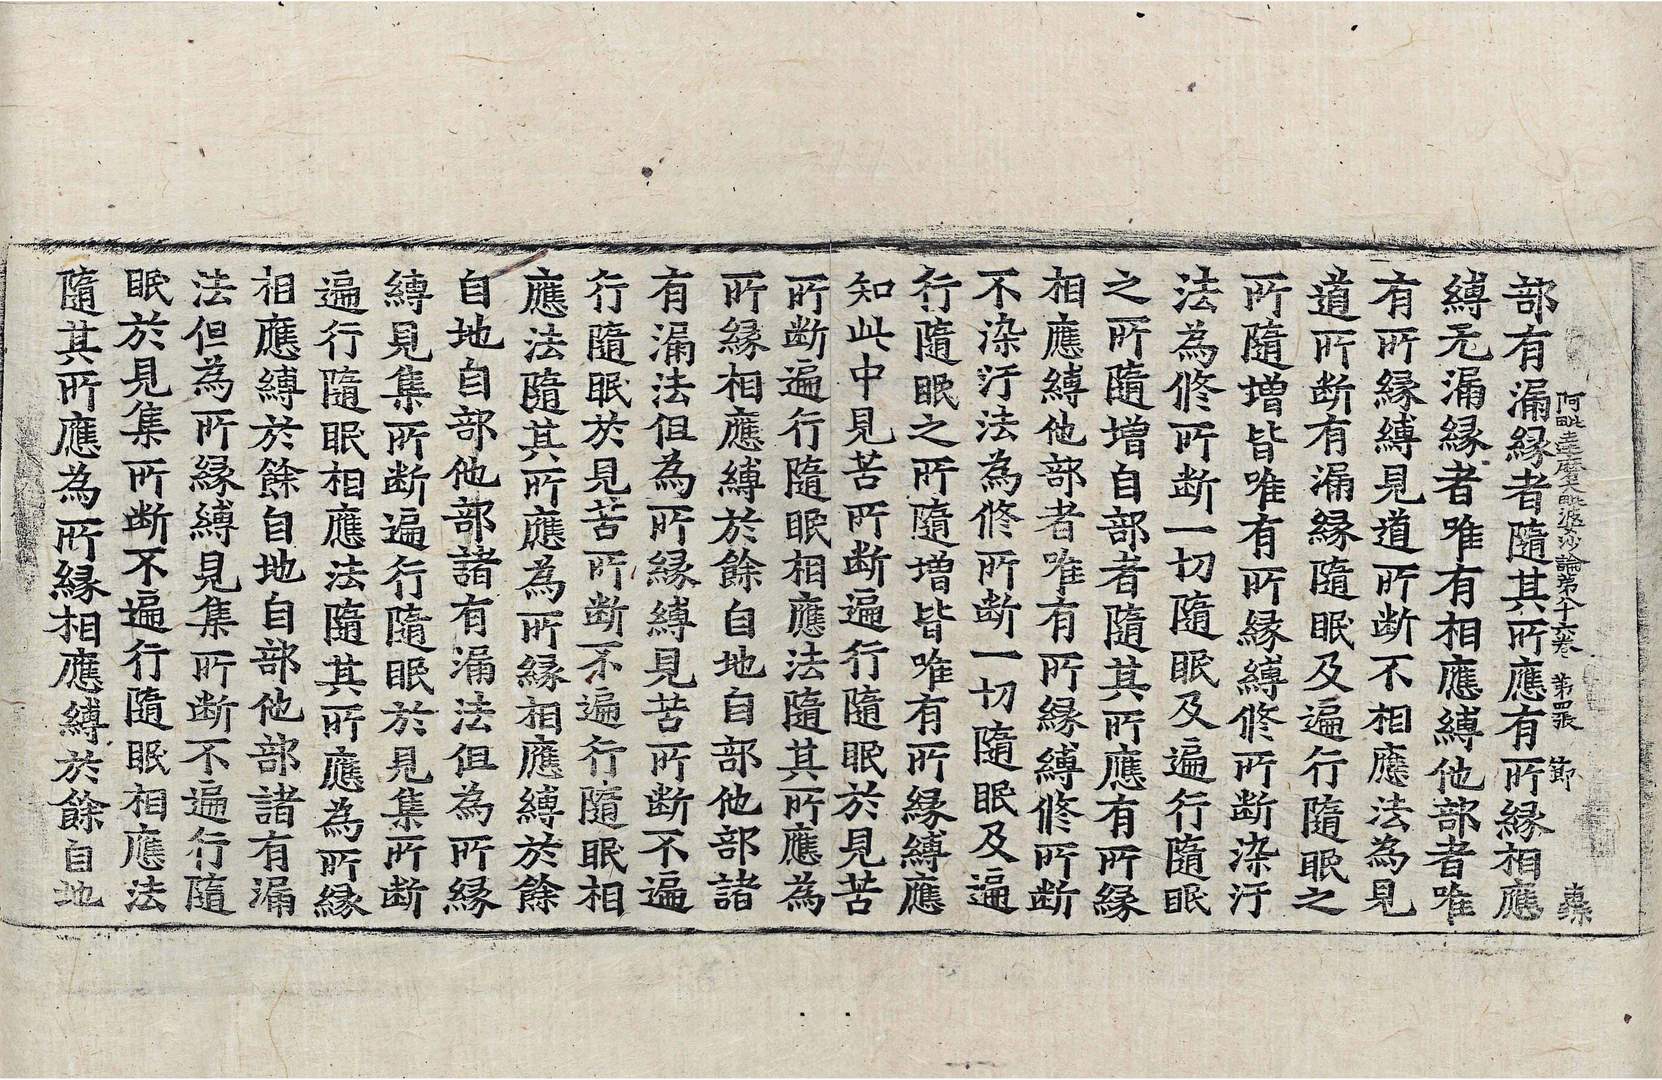 阿毗達磨大毗婆沙論第八十六卷 第四張 節
部有漏縁者隨其所應有所縁相應
縛无漏縁者唯有相應縛他部者唯
有所縁縛見道所断不相應法為見
道所断有漏縁隨眠及遍行隨眠之
所隨增皆唯有所縁縛修所断染汙
法為修所断一切隨眠及遍行隨眠
之所隨增自部者隨其所應有所縁
相應縛他部者唯有所縁縛修所断
不染汙法為修所断一切隨眠及遍
行隨眠之所隨增皆唯有所縁縛應
知此中見苦所断遍行隨眠於見苦
所断遍行隨眠相應法隨其所應為
所縁相應縛於餘自地自部他部諸
有漏法但為所縁縛見苦所断不遍
行隨眠於見苦所断不遍行隨眠相
應法隨其所應為所縁相應縛於餘
自地自部他部諸有漏法但為所縁
縛見集所断遍行隨眠於見集所断
遍行隨眠相應法隨其所應為所縁
相應縛於餘自地自部他部諸有漏
法但為所縁縛見集所断不遍行隨
眠於見集所断不遍行隨眠相應法
隨其所應為所縁相應縛於餘自地